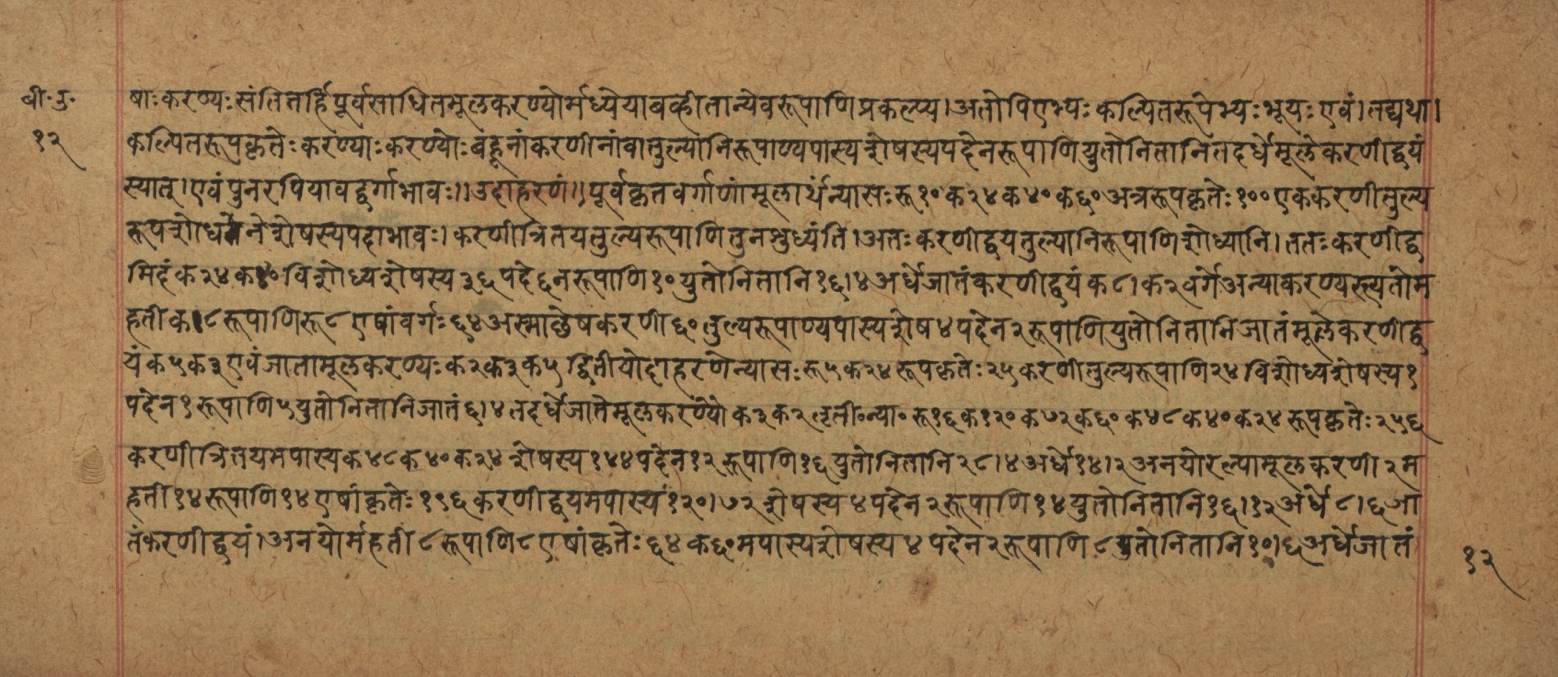 बी॰ ऽ॰
१२
षाः करण्यः संति तर्हि पूर्वसाधितमूलकरण्योर्मध्ये या बव्ही तान्येव रूपाणि प्रकल्प्य । अतोपि एभ्यः कल्पितरूपेभ्यः भूयः एवं । तद्यथा ।
कल्पितरूपकृतेः करण्याः करण्योः बहूनां करणीनां वा तुल्यानि रूपाण्यपास्य शेषस्य पदेन रूपाणि युतोनितानि तदर्धे मूले करणीद्वयं
स्यात् । एवं पुनरपि यावद्वर्गाभावः ॥ उदाहरणं ॥ पूर्वकृतवर्गाणां मूलार्थं न्यासः रू १० क २४ क ४० क ६० अत्र रूपकृतेः १०० एककरणीतुल्य
रूपशोधनेन शेषस्य पदाभावः । करणीत्रितयतुल्यरूपाणि तु न शुध्यंति । अतः करणीद्वयतुल्यानि रूपाणि शोध्यानि । ततः करणीद्व
मिदं क २४ क ४० विशोध्य शेषस्य ३६ पदे ६ न रूपाणि १० युतोनितानि १६ । ४ अर्धे जातं करणीद्वयं क ८ । क २ वर्गे अन्या करण्यस्त्यतो म
हती क ८ रूपाणि रू ८ एषां वर्गः ६४ अस्माछेषकरणी ६० तुल्यरूपाण्यपास्य शेष ४ पदेन २ रूपाणि युतोनितानि जातं मूले करणीद्व
यं क ५ क ३ एवं जाता मूलकरण्यः क २ क ३ क ५ द्वितीयोदाहरणे न्यासः रू ५ क २४ रूपकृतेः २५ करणीतुल्यरूपाणि २४ विशोध्य शेषस्य १
पदेन १ रूपाणि ५ युतोनितानि जातं ६ । ४ तदर्धे जाते मूलकरण्यो क ३ क २ तृती॰ न्या॰ रू १६ क १२० क ७२ क ६० क ४८ क ४० क २४ रूपकृतेः २५६
करणीत्रितयमपास्य क ४८ क ४० क २४ शेषस्य १४४ पदेन १२ रूपाणि १६ युतोनितानि २८ । ४ अर्धे १४ । २ अनयोरल्पा मूलकरणी २ म
हती १४ रूपाणि १४ एषां कृतेः १९६ करणीद्वयमपास्यं १२० । ७२ शेषस्य ४ पदेन २ रूपाणि १४ युतोनितानि १६ । १२ अर्धे ८ । ६ जा
तं करणीद्वयं । अनयोर्महती ८ रूपाणि ८ एषां कृतेः ६४ क ६० मपास्य शेषस्य ४ पदेन २ रूपाणि ८ युतोनितानि १० । ६ अर्धे जातं
१२